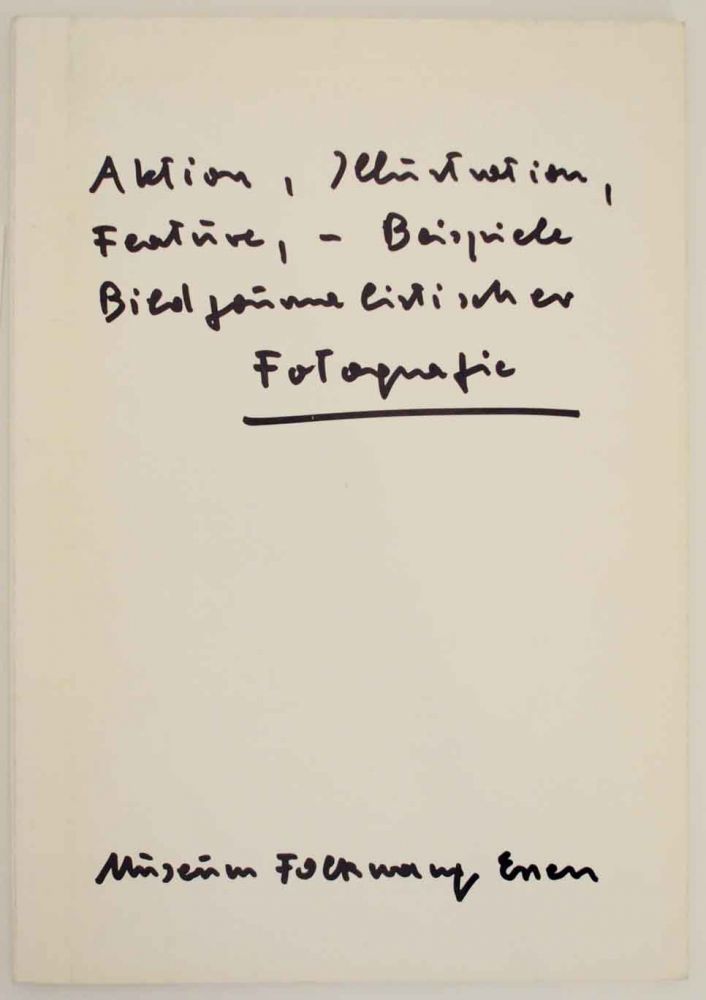 Aktion, Illustration,
Feature, - Beispiele
Bildjournalistischer
Fotografie
Museum Folkwang Essen